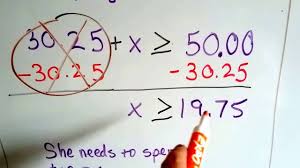 30.25 + x ≥ 50.00
-30.25 -30.25
x ≥ 19.75
She needs to spend